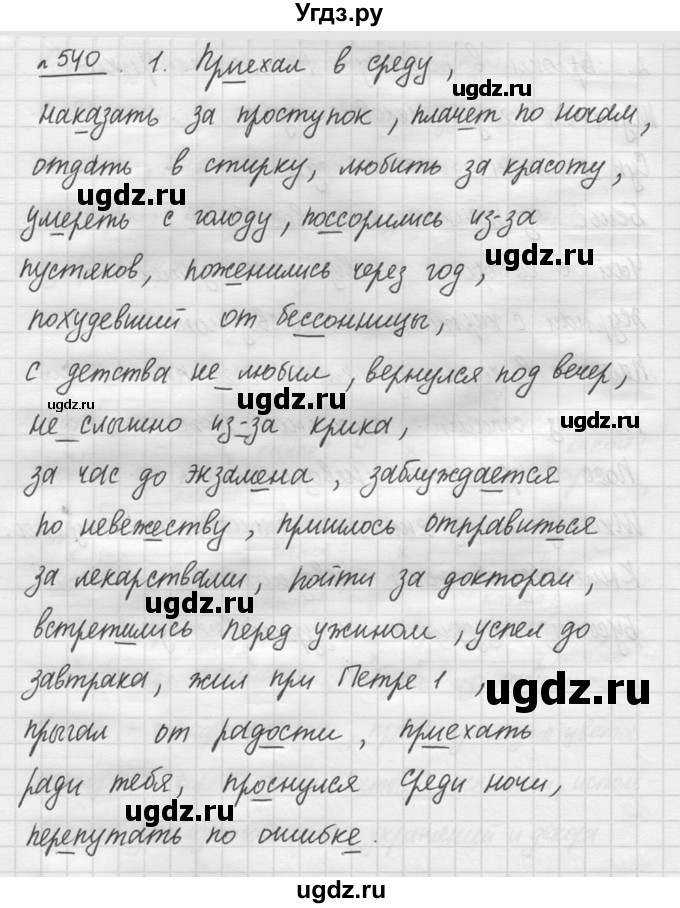 Угдз.ру
№540. 1. Приехал в среду,
наказать за проступок, плачет по ночам,
отдать в стирку, любить за красоту,
умереть с голоду, поссорились из-за
пустяков, поженились через год,
похудевший от бессонницы,
с детства не любил, вернулся под вечер,
не слышно из-за крика,
за час до экзамена, заблуждается
по невежеству, пришлось отправиться
за лекарствами, пойти за доктором,
встретились перед ужином, успел до
завтрака, жил при Петре 1,
прыгал от радости, приехать
ради тебя, проснулся среди ночи,
перепутать по ошибке.
ugdz.ru
ugdz.ru
ugdz.ru
ugdz.ru
ugdz.ru
ugdz.ru
ugdz.ru
ugdz.ru
ugdz.ru
ugdz.ru
ugdz.ru
ugdz.ru